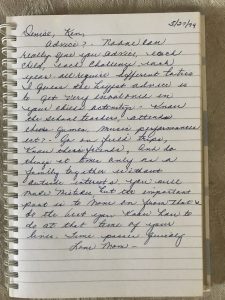 5/27/99
Denise, Ken,
Advice? - No one can
really give you advice, each
child, each challenge, each
year all require different tactics
I guess the biggest advice is
to get very involved in
your child's activities. - Know
the school teacher, attend
chess games, music performances
ect? - Go on field trips,
Know their friends, and do
things at time only as a
family together without
outside interests. You will
make mistakes but the important
part is to move on from that &
do the best you know how to
do at that time of your
lives. Time passes quickly
Love Mom -